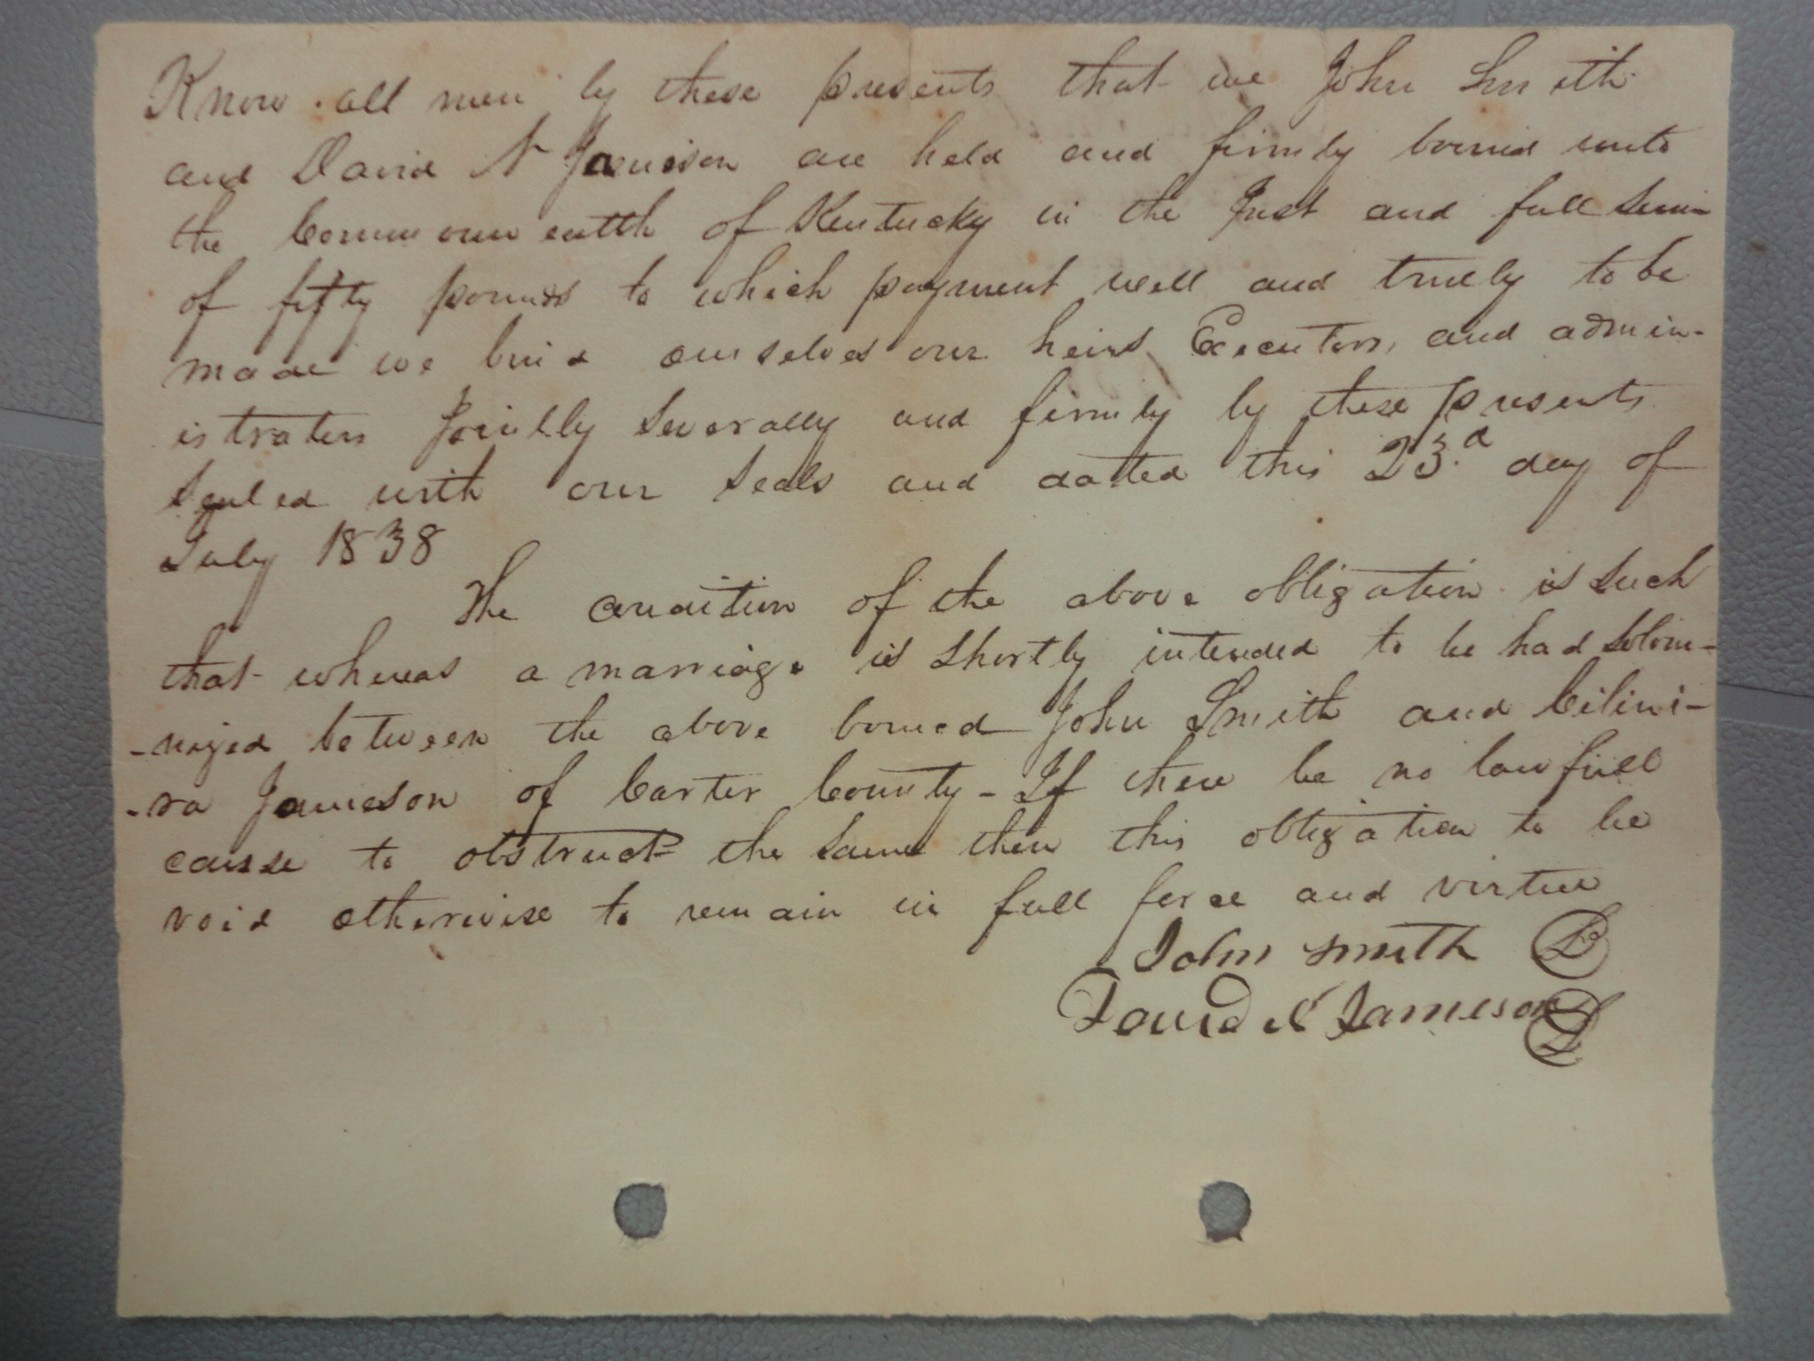 Know all men by these presents that we John Smith
and David N Jameson are held and firmly bound unto
the Commonwealth of Kentucky in the Just and full Sum
of fifty pounds to which payment well and truely to be
made we bind ourselves our heirs Executors, and admin-
istrators Jointly Severally and firmly by these presents
Sealed with our Seals and dated this 23.d day of
July 1838
The condition of the above obligation is Such
that whereas a marriage is Shortly intended to be had Solem-
-nized between the above bound John Smith and Cilini-
-ra Jameson of Carter County - If there be no lawfull
cause to obstruct the Same then this obligation to be
void otherwise to remain in full force and virtue
John Smith
David N Jameson